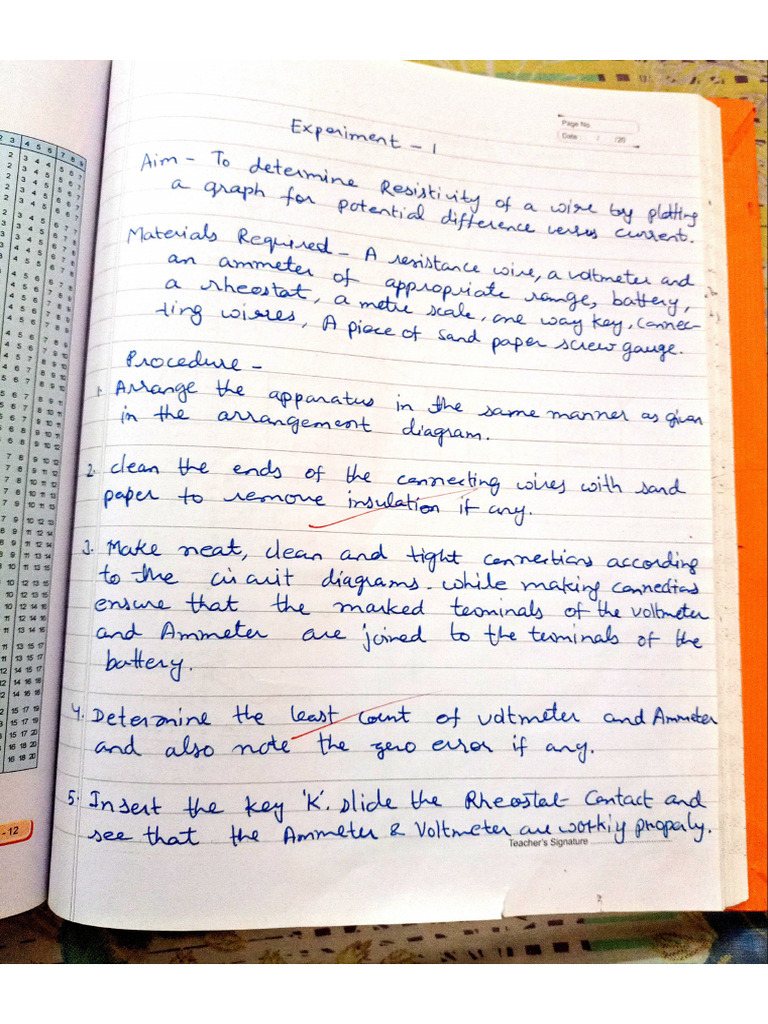 Page No.
Date : / /20
Experiment - 1
Aim - To determine Resistivity of a wire by plotting
a graph for potential difference verses current.
Materials Required - A resistance wire, a voltmeter and
an ammeter of appropriate range, battery,
a rheostat, a metre scale, one way key, connec-
ting wires, A piece of sand paper screw gauge.
Procedure -
1. Arrange the apparatus in the same manner as given
in the arrangement diagram.
2. clean the ends of the connecting wires with sand
paper to remove insulation if any.
3. Make neat, clean and tight connections according
to the circuit diagrams. while making connections
ensure that the marked terminals of the voltmeter
and Ammeter are joined to the terminals of the
battery.
4. Determine the least count of voltmeter and Ammeter
and also note the zero error if any.
5. Insert the key 'K'. slide the Rheostat Contact and
see that the Ammeter & Voltmeter are workiy properly.
Teacher's Signature
- 12